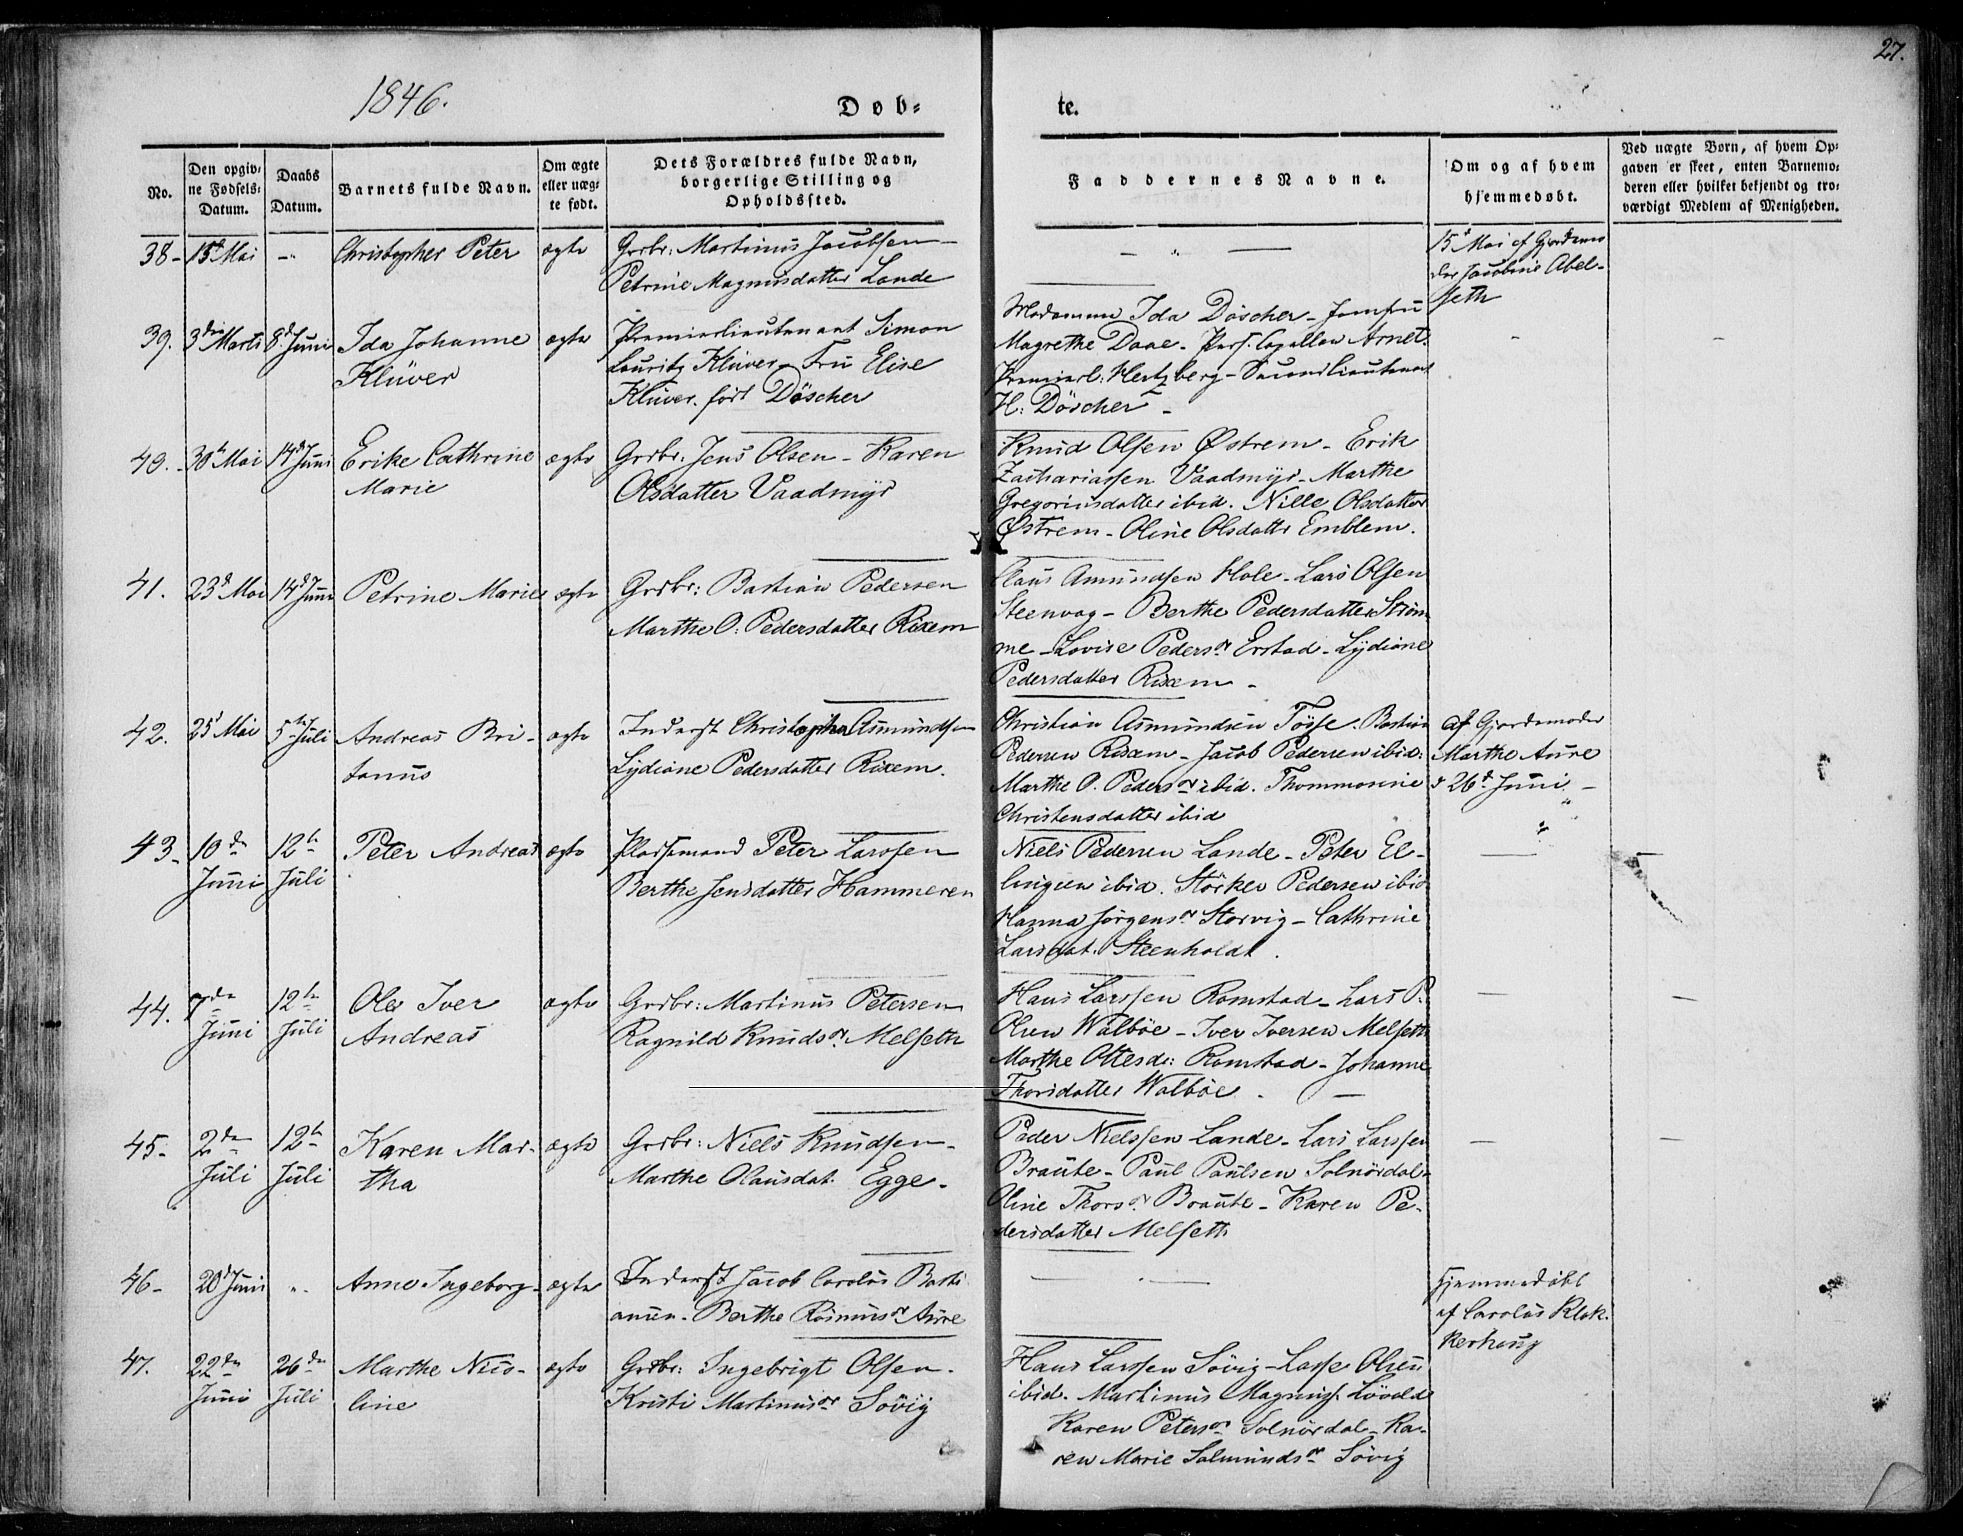 27.
1846.
Døb-
te.
No.
Den opgiv-
ne Fødsels-
Datum.
Daabs
Datum.
Barnets fulde Navn.
Om ægte
eller uæg-
te født.
Dets Forældres fulde Navn,
borgerlige Stilling og
Opholdssted.
Faddernes Navne.
Om og af hvem
hjemmedøbt.
Ved uægte Børn, af hvem Op-
gaven er skeet, enten Barnemo-
deren eller hvilket bekjendt og tro-
værdigt Medlem af Menigheden.
38- 15de Mai -"- Christopher Peter ægte Grdbr: Martinus Jacobsen -
Petrine Magnusdatter Lande
- " -
15d Mai af Gjordemo
der Jacobine Abel-
seth
39. 3die Marts 8d Juni Ida Johanne ægte Premierlieutenant Simon
Klüver Lauritz Klüver - Fru Elise
Klüver født Döscher
Madamme Ida Döscher - Jomfru
Magrethe Daae - Pers. Capellan Arnet.
Premierl: Hertzberg - Secondlieutenant
H: Döscher -
40. 30d Mai 14d Juni Erike Cathrine ægte Grdbr: Jens Olsen - Karen
Marie Olsdatter Vaadmyr
Knud Olsen Østrem - Erik
Zachariassen Vaadmyr - Marthe
Gregoriusdatter ibid. Nille Olsdatter
Østrem - Oline Olsdattr Emblem.
41. 23d Mai 14d Juni Petrine Marie ægte Grdbr: Bastian Pedersen
Marthe O: Pedersdatter Rixem
Claus Amundsen Hole - Lars Olsen
Steenvag - Berthe Pedersdatter Strøm-
me - Lovise Pedersdr Erstad - Lydiane
Pedersdatter Rixem -
42. 25d Mai 5te Juli Andreas Bri- ægte Inderst Christopher Asmundsen
tanus Lydiane Pedersdatter Rixem.
Christian Asmundsen Tösse. Bastian
Pedersen Rixem - Jacob Pedersen ibid:
Marthe O. Pedersdr ibid. Thommasine
Christensdatter ibid
af Gjordemoder
Marthe Aure
d 26d Juni -
43- 10de 12te Peter Andreas ægte Pladsemand Peter Larssen
Juni Juli Berthe Jensdatter Hammeren
Niels Pedersen Lande - Peter El-
lingsen ibid. Störker Pedersen ibid
Hanna Jørgensdr Storvig - Cathrine
Larsdat. Steenholdt.
44. 7de 12te Ole Iver ægte Grdbr: Martinus Petersen
Juni Juli Andreas Ragnild Knudsdr. Melseth
Hans Larssen Romstad - Lars P.
Olsen Walböe - Iver Iversen Melseth
Marthe Ottesdr: Romstad - Johanne
Thorsdatter Walböe. -
45- 2de 12te Karen Mar- ægte Grdbr: Niels Knudsen -
Juli Juli tha Marthe Olausdat. Egge.
Peder Nielssen Lande - Lars Larssen
Braute - Paul Paulsen Solnördal -
Oline Thorsdr. Braute - Karen Pe-
dersdatter Melseth
46- 20d Juni "- Anne Ingeborg- ægte Inderst Jacob Carolus Basti
ansen - Berthe Rasmusdr Aure
hjemmedöbt
af Carolus Klok-
kerhaug
47. 22de 26de Marthe Nico- ægte Grdbr: Ingebrigt Olsen -
Juni Juli line Kristi Martinusdr Sövig
Hans Larssen Sövig - Lasse Olsen
ibid. Martinus Magnuss. Lövold
Karen Petersdr Solnördal - Ka-
ren Marie Salmundsdr Sövig